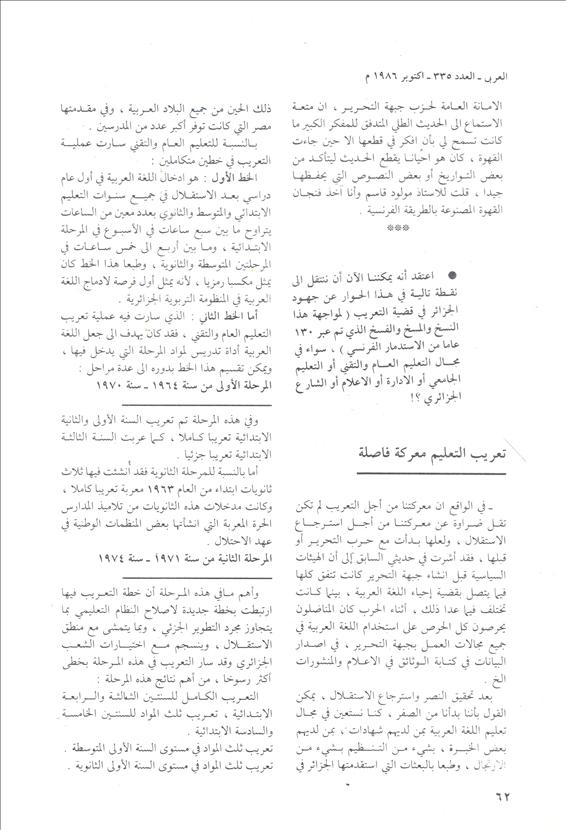 العربي ـ العدد ٣٣٥ ـ اكتوبر ١٩٨٦ م
الامانة العامة لحزب جبهة التحرير ، ان متعة
الاستماع الى الحديث الطلي المتدفق للمفكر الكبير ما
كانت تسمح لي بأن افكر في قطعها الا حين جاءت
القهوة ، كان هو احيانا يقطع الحديث ليتأكد من
بعض التواريخ أو بعض النصوص التي يحفظها
جيدا ، قلت للاستاذ مولود قاسم وأنا آخذ فنجان
القهوة المصنوعة بالطريقة الفرنسية .
***
● اعتقد أنه يمكننا الآن أن ننتقل الى
نقطة تالية في هذا الحوار عن جهود
الجزائر في قضية التعريب ( لمواجهة هذا
النسخ والمسخ والفسخ الذي تم عبر ١٣٠
عاما من الاستدمار الفرنسي ) ، سواء في
مجال التعليم العام والتقني أو التعليم
الجامعي أو الادارة أو الاعلام أو الشارع
الجزائري ؟!
تعريب التعليم معركة فاصلة
ـ في الواقع ان معركتنا من أجل التعريب لم تكن
تقل ضراوة عن معركتنا من أجل استرجاع
الاستقلال ، ولعلها بدأت مع حرب التحرير أو
قبلها ، فقد أشرت في حديثي السابق إلى أن الهيئات
السياسية قبل انشاء جبهة التحرير كانت تتفق كلها
فيما يتصل بقضية إحياء اللغة العربية ، بينما كانت
تختلف فيما عدا ذلك ، أثناء الحرب كان المناضلون
يحرصون كل الحرص على استخدام اللغة العربية في
جميع مجالات العمل بجبهة التحرير ، في اصدار
البيانات في كتابة الوثائق في الاعلام والمنشورات
الخ .
بعد تحقيق النصر واسترجاع الاستقلال ، يمكن
القول بأننا بدأنا من الصفر ، كنا نستعين في مجال
تعليم اللغة العربية بمن لديهم شهادات ، بمن لديهم
بعض الخبرة ، بشيء من التنظيم بشيء من
الارتجال ، وطبعا بالبعثات التي استقدمتها الجزائر في
ذلك الحين من جميع البلاد العربية ، وفي مقدمتها
مصر التي كانت توفر أكبر عدد من المدرسين .
بالنسبة للتعليم العام والتقني سارت عملية
التعريب في خطين متكاملين :
الخط الأول : هو ادخال اللغة العربية في أول عام
دراسي بعد الاستقلال في جميع سنوات التعليم
الابتدائي والمتوسط والثانوي بعدد معين من الساعات
يتراوح ما بين سبع ساعات في الأسبوع في المرحلة
الابتدائية ، وما بين أربع الى خمس ساعات في
المرحلتين المتوسطة والثانوية ، وطبعا هذا الخط كان
يمثل مكسبا رمزيا ، لأنه يمثل أول فرصة لادماج اللغة
العربية في المنظومة التربوية الجزائرية .
أما الخط الثاني : الذي سارت فيه عملية تعريب
التعليم العام والتقني ، فقد كان يهدف الى جعل اللغة
العربية أداة تدريس لمواد المرحلة التي يدخل فيها ،
ويمكن تقسيم هذا الخط بدوره الى عدة مراحل :
المرحلة الأولى من سنة ١٩٦٤ ـ سنة ١٩٧٠
وفي هذه المرحلة تم تعريب السنة الأولى والثانية
الابتدائية تعريبا كاملا ، كما عربت السنة الثالثة
الابتدائية تعريبا جزئيا .
أما بالنسبة للمرحلة الثانوية فقد أنشئت فيها ثلاث
ثانويات ابتداء من العام ١٩٦٣ معربة تعريبا كاملا ،
وكانت مدخلات هذه الثانويات من تلاميذ المدارس
الحرة المعربة التي انشأتها بعض المنظمات الوطنية في
عهد الاحتلال .
المرحلة الثانية من سنة ١٩٧١ ـ سنة ١٩٧٤
وأهم ما في هذه المرحلة أن خطة التعريب فيها
ارتبطت بخطة جديدة لاصلاح النظام التعليمي بما
يتجاوز مجرد التطوير الجزئي ، وبما يتمشى مع منطق
الاستقلال ، وينسجم مع اختيارات الشعب
الجزائري وقد سار التعريب في هذه المرحلة بخطى
أكثر رسوخا ، من أهم نتائج هذه المرحلة :
التعريب الكامل للسنتين الثالثة والرابعة
الابتدائية ، تعريب ثلث المواد للسنتين الخامسة
والسادسة الابتدائية .
تعريب ثلث المواد في مستوى السنة الأولى المتوسطة .
تعريب ثلث المواد في مستوى السنة الأولى الثانوية .
٦٢